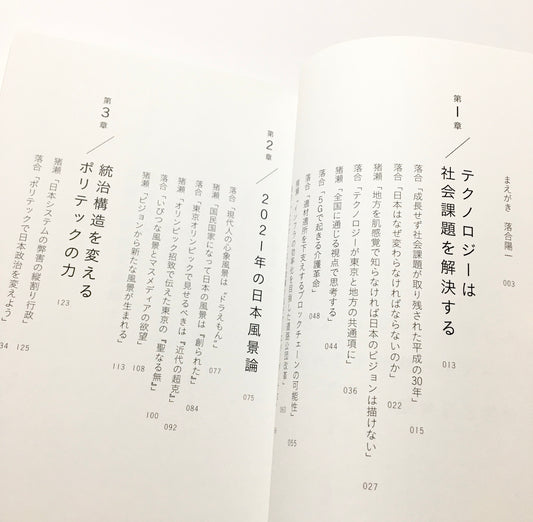 まえがき 落合陽一 003
第1章 テクノロジーは
社会課題を解決する 013
落合「成長せず社会課題が取り残された平成の30年」 015
落合「日本はなぜ変わらなければならないのか」 022
猪瀬「地方を肌感覚で知らなければ日本のビジョンは描けない」 027
落合「テクノロジーが東京と地方の共通項に」 036
猪瀬「全国に通じる視点で思考する」 044
落合「5Gで起きる介護革命」 048
落合「適材適所を下支えするブロックチェーンの可能性」 055
第2章 2021年の日本風景論 075
落合「現代人の心象風景は、『ドラえもん』」 077
猪瀬「国民国家になって日本の風景は『創られた』」 084
落合「東京オリンピックで見せるべきは『近代の超克』」 092
猪瀬「オリンピック招致で伝えた東京の『聖なる無』」 100
落合「いびつな風景とマスメディアの欲望」 108
猪瀬「ビジョンから新たな風景が生まれる」 113
第3章 統治構造を変える
ポリテックの力 123
猪瀬「日本システムの弊害の縦割り行政」 125
落合「ポリテックで日本政治を変えよう」 34